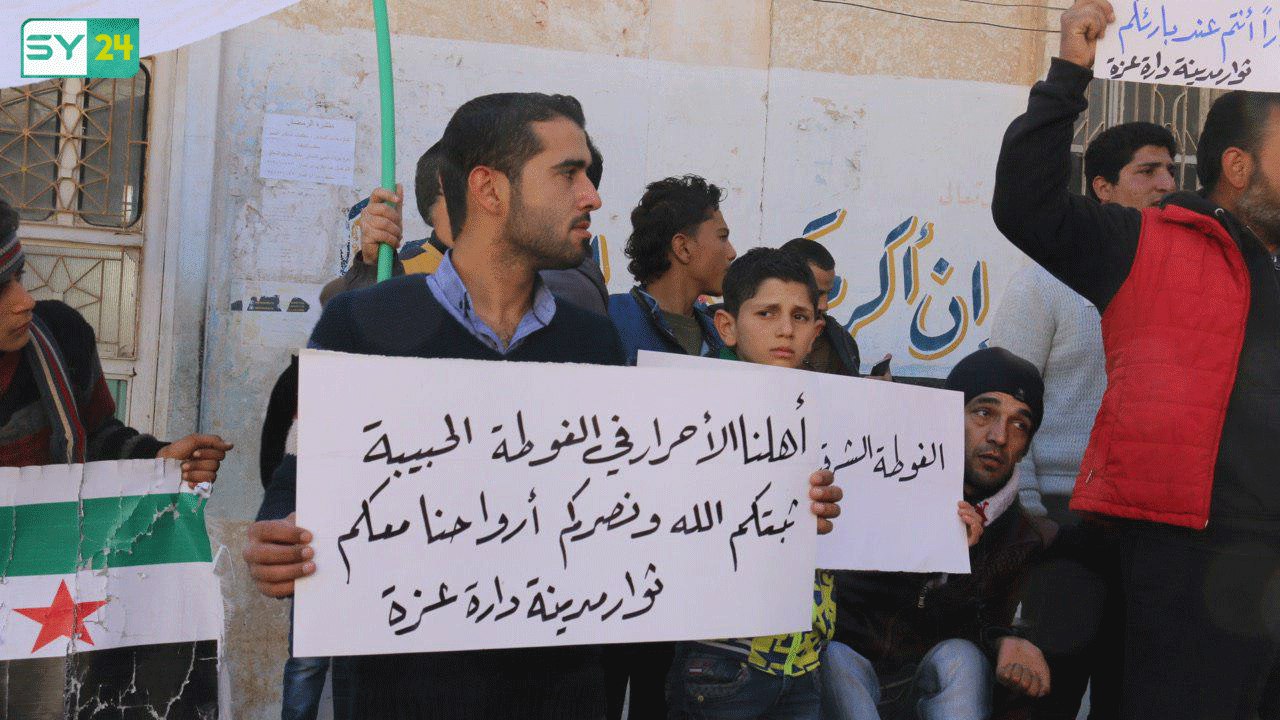 SY 24
أهلنا الأحرار في الغوطة الحبيبة
ثبتكم الله ونصركم أرواحنا معكم
ثوار مدينة دارة عزة
الغوطة الشرق
راً أنتم عند بارئكم
ثوار مدينة دارة عزة
إن أكر